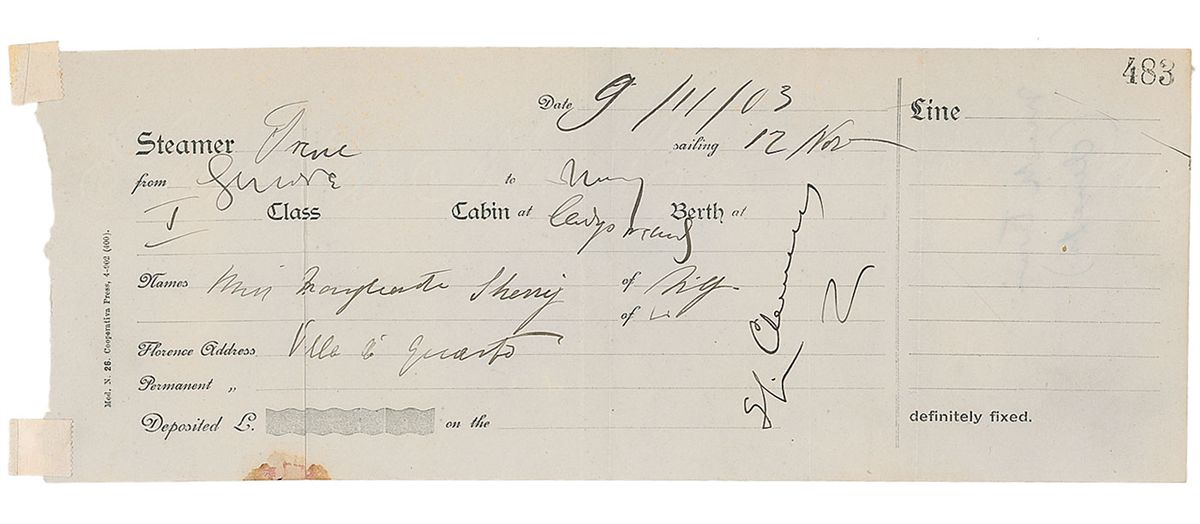 483
Date 9/11/03
Line
Steamer Trave
sailing 12 Nov
from Genova to
I Class Cabin at Ladys Berth at
Names Miss Marguerite Sherry of N.Y.
of
Florence Address Villa di Quarto
Permanent „
Deposited L. on the
definitely fixed.
S L. Clemens
Mod. N. 26. Cooperativa Press, 4-902 (400).